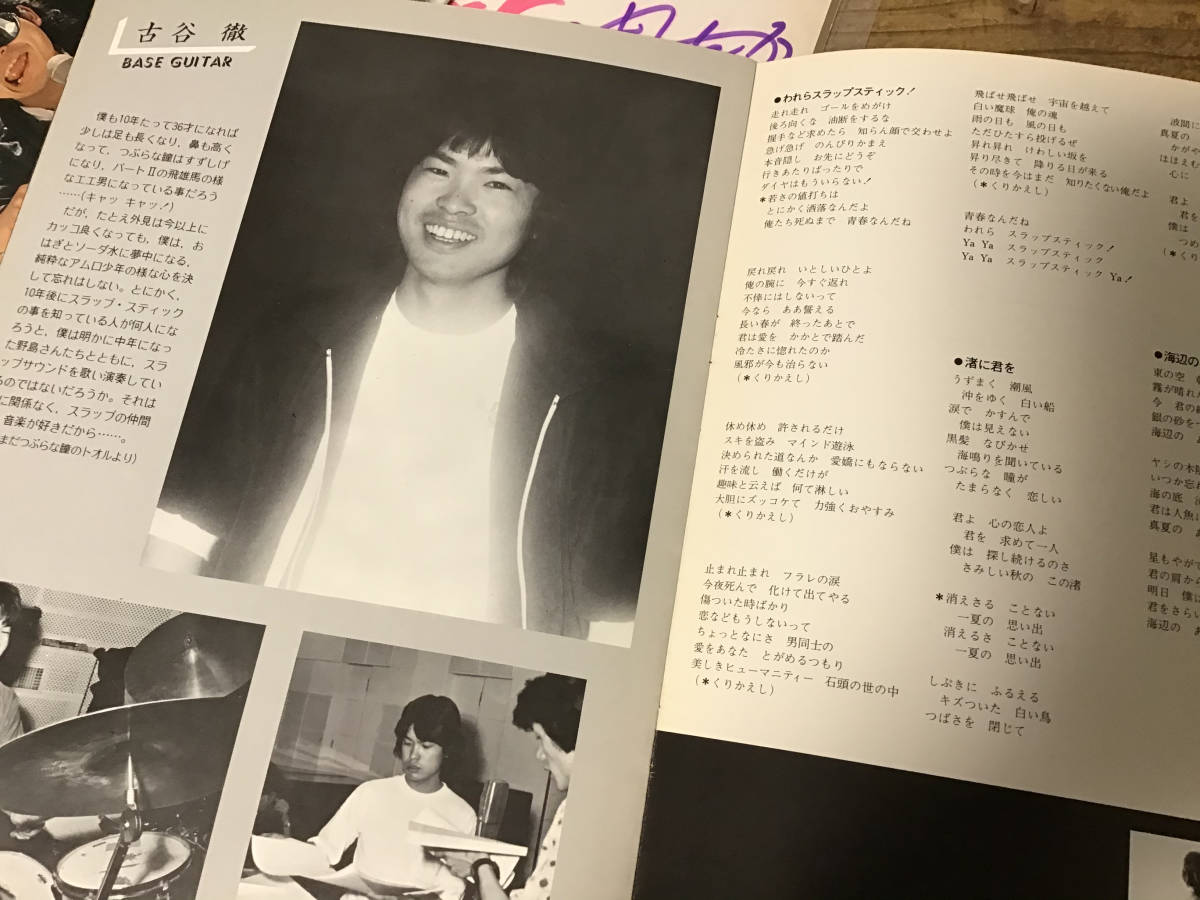 古谷 徹
BASE GUITAR
僕も10年たって36才になれば
少しは足も長くなり、鼻も高く
なって、つぶらな瞳はすずしげ
になり、パートⅡの飛雄馬の様
なエエ男になっている事だろう
……(キャッ キャッ!)
だが、たとえ外見は今以上に
カッコ良くなっても、僕は、お
はぎとソーダ水に夢中になる、
純粋なアムロ少年の様な心を決
して忘れはしない。とにかく、
10年後にスラップ・スティック
の事を知っている人が何人にな
ろうと、僕は明かに中年になっ
た野島さんたちとともに、スラ
ップサウンドを歌い演奏してい
るのではないだろうか。それは
に関係なく、スラップの仲間
音楽が好きだから……。
まだつぶらな瞳のトオルより)
●われらスラップスティック!
走れ走れ ゴールをめがけ
後ろ向くな 油断をするな
握手など求めたら 知らん顔で交わせよ
急げ急げ のんびりかまえ
本音隠し お先にどうぞ
行きあたりばったりで
ダイヤはもういらない!
*若さの値打ちは
とにかく洒落なんだよ
俺たち死ぬまで 青春なんだね
戻れ戻れ いとしいひとよ
俺の腕に 今すぐ返れ
不倖にはしないって
今なら ああ誓える
長い春が 終ったあとで
君は愛を かかとで踏んだ
冷たさに惚れたのか
風邪が今も治らない
(*くりかえし)
休め休め 許されるだけ
スキを盗み マインド遊泳
決められた道なんか 愛嬌にもならない
汗を流し 働くだけが
趣味と云えば 何て淋しい
大胆にズッコケて 力強くおやすみ
(*くりかえし)
止まれ止まれ フラレの涙
今夜死んで 化けて出てやる
傷ついた時ばかり
恋などもうしないって
ちょっとなにさ 男同士の
愛をあなた とがめるつもり
美しきヒューマニティー 石頭の世の中
(*くりかえし)
飛ばせ飛ばせ 宇宙を越えて
白い魔球 俺の魂
雨の日も 風の日も
ただひたすら投げるぜ
昇れ昇れ けわしい坂を
昇り尽きて 降りる日が来る
その時を今はまだ 知りたくない俺だよ
(*くりかえし)
青春なんだね
われら スラップスティック!
Ya Ya スラップスティック
Ya Ya スラップスティック Ya!
●渚に君を
うずまく 潮風
沖をゆく 白い船
涙で かすんで
僕は見えない
黒髪 なびかせ
海鳴りを聞いている
つぶらな 瞳が
たまらなく 恋しい
君よ 心の恋人よ
君を 求めて一人
僕は 探し続けるのさ
さみしい秋の この渚
*消えさる ことない
一夏の 思い出
消えるさ ことない
一夏の 思い出
しぶきに ふるえる
キズついた 白い鳥
つばさを 閉じて
波間に
真夏の
かがや
ほほえむ
心に
君よ
君を
僕は
つめ
(*く
●海辺の
東の空
霧が晴れ
今 君の
銀の砂を
海辺の
ヤシの木陰
いつか忘れ
海の底
君は人魚に
真夏の
星もやがて
君の肩から
明日 僕は
君をさらい
海辺の